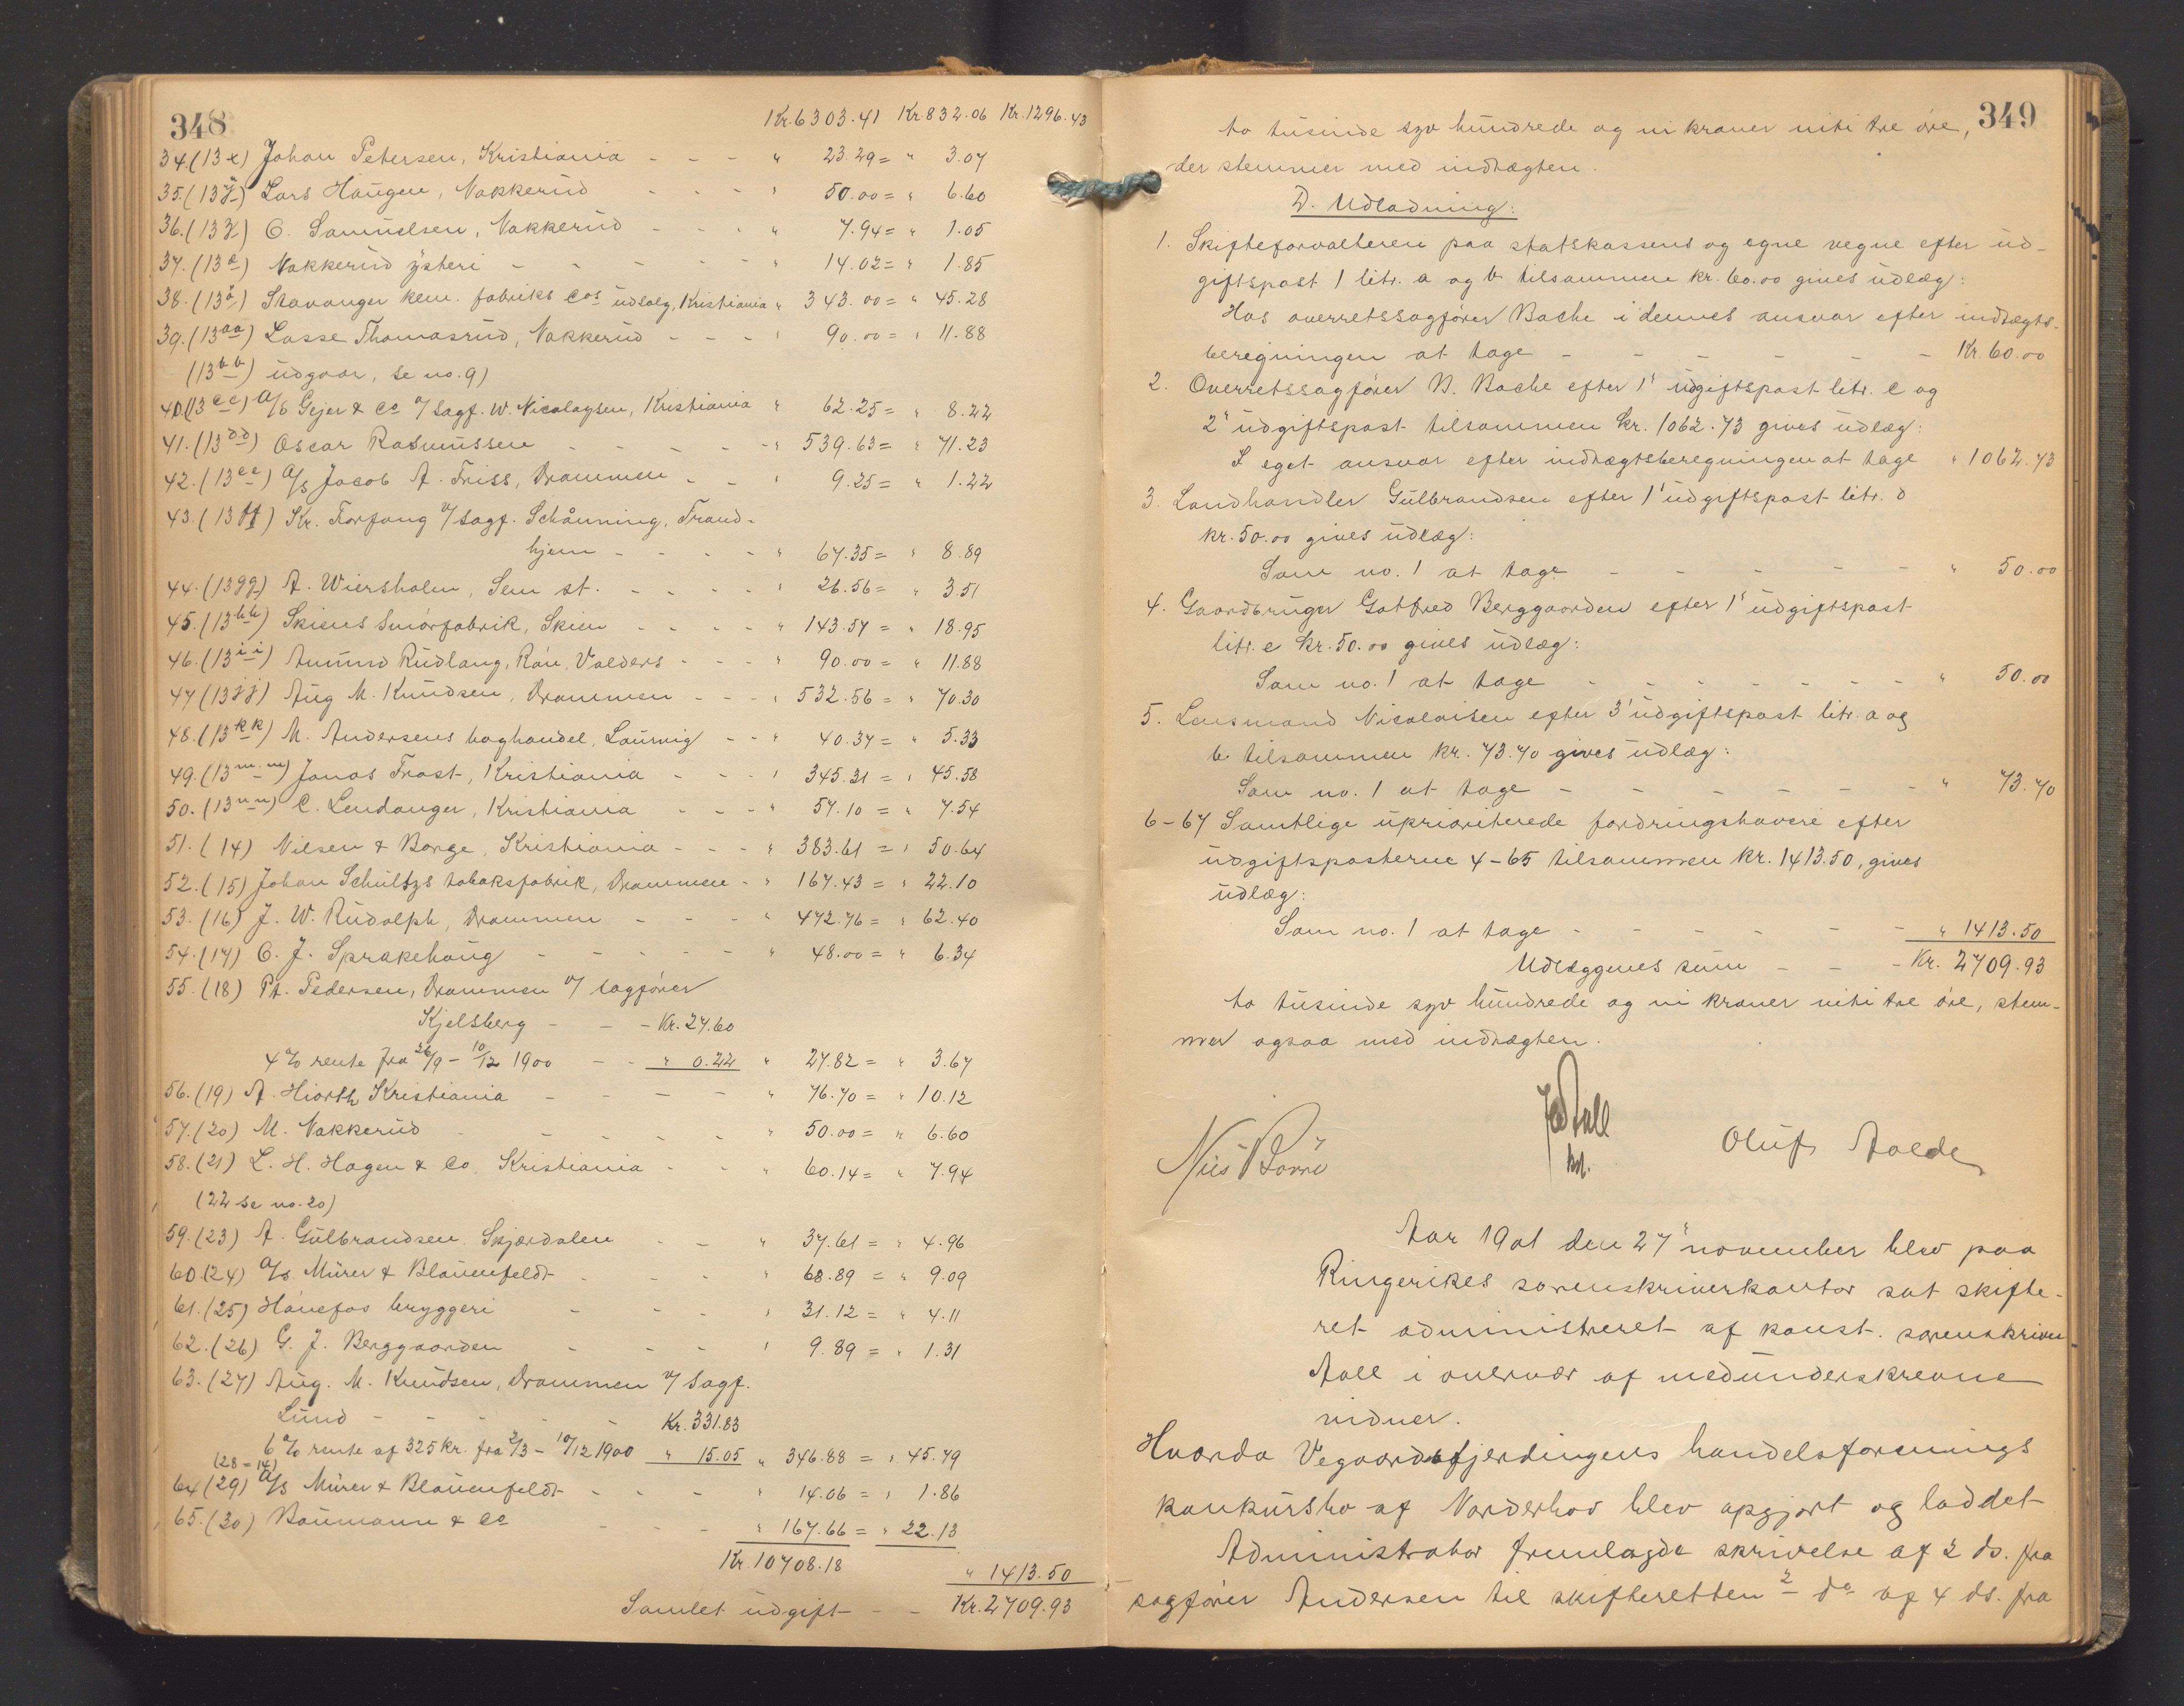 348
Kr. 6303.41 Kr. 832.06 Kr. 1296.43
34 (13x) Johan Petersen, Kristiania - - - " 23.29 = " 3.07
35. (13y) Lars Haugen, Nakkerud - - - " 50.00 = " 6.60
36. (13z) O. Samuelsen, Nakkerud - - - " 7.94 = " 1.05
37. (13æ) Nakkerud ysteri - - - - " 14.02 = " 1.85
38. (13ø) Stavanger kem. fabriks Cos udsalg, Kristiania " 343.00 = " 45.28
39. (13aa) Lasse Thomasrud, Nakkerud - - - " 90.00 = " 11.88
(13bb) udgaar, se no. 9)
40. (13cc) A/S Gejer & Co v/ sagf. W. Nicolaysen, Kristiania " 62.25 = " 8.22
41. (13dd) Oscar Rasmussen - - - - " 539.63 = " 71.23
42. (13ee) A/S Jacob A. Friss, Drammen - - " 9.25 = " 1.22
43. (13ff) Kr. Forfang v/ sagf. Schånning, Trond-
hjem - - - - " 67.35 = " 8.89
44. (13gg) A. Wiersholm, Sem st. - - - - " 26.56 = " 3.51
45. (13hh) Skiens Smørfabrik, Skien - - - - " 143.57 = " 18.95
46. (13ii) Amund Rudlang, Røn, Valders - - - " 90.00 = " 11.88
47 (13jj) Aug M. Knudsen, Drammen - - - " 532.56 = " 70.30
48. (13kk) M. Andersens boghandel, Laurvig - - " 40.37 = " 5.33
49. (13mm) Jonas Frost, Kristiania - - - " 345.31 = " 45.58
50. (13nn) C. Lendanger, Kristiania - - - " 57.10 = " 7.54
51. (14) Nilsen & Borge, Kristiania - - - " 383.61 = " 50.64
52. (15) Johan Schultzs tobaksfabrik, Drammen - " 167.43 = " 22.10
53. (16) J. W. Rudolph, Drammen - - - " 472.76 = " 62.40
54. (17) O. J. Sprakehaug - - - - - " 48.00 = " 6.34
55. (18) Pt. Pedersen, Drammen v/ sagfører
Kjelsberg - - - Kr. 27.60
4 % rente fra 26/9 - 10/12 1900 - - " 0.22 " 27.82 = " 3.67
56. (19) A. Hiorth Kristiania - - - - " 76.70 = " 10.12
57. (20) M. Nakkerud - - - - - " 50.00 = " 6.60
58. (21) L. H. Hagen & Co, Kristiania - - " 60.14 = " 7.94
(22 se no. 20)
59. (23) A. Gulbrandsen, Skjærdalen - - " 37.61 = " 4.96
60. (24) A/S Mürer & Blauenfeldt - - - " 68.89 = " 9.09
61. (25) Hønefos bryggeri - - - " 31.12 = " 4.11
62. (26) G. J. Berggaarden - - - " 9.89 = " 1.31
63. (27) Aug. M. Knudsen, Drammen v/ sagf.
Lund - - - - - Kr. 331.83
6 % rente af 325 kr. fra 2/3 - 10/12 1900 " 15.05 " 346.88 = " 45.79
(28 = 14)
64 (29) A/S Mürer & Blauenfeldt - - - - " 14.06 = " 1.86
65. (30) Baumann & Co - - - " 167.66 = " 22.13
Kr. 10708.18 " 1413.50
Samlet udgift - - Kr. 2709.93
349
to tusinde syv hundrede og ni kroner niti tre øre,
der stemmer med indtægten.
D. Udlodning:
1. Skifteforvalteren paa statskassens og egne vegne efter ud-
giftspost 1 litr. a og b tilsammen kr. 60.00 gives udlæg:
Hos overretssagfører Bache i dennes ansvar efter indtægts-
beregningen at tage - - - - - - Kr. 60.00
2. Overretssagfører N. Bache efter 1' udgiftspost litr. c og
2' udgiftspost tilsammen kr. 1062.73 gives udlæg:
I eget ansvar efter indtægtsberegningen at tage " 1062.73
3. Landhandler Gulbrandsen efter 1' udgiftspost litr. d
kr. 50.00 gives udlæg:
Som no. 1 at tage - - - - - - " 50.00
4. Gaardbruger Gotfred Berggaarden efter 1' udgiftspost
litr. e kr. 50.00 gives udlæg:
Som no. 1 at tage - - - - - - - " 50.00
5. Lensmand Nicolaisen efter 3' udgiftspost litr. a og
b tilsammen kr. 73.70 gives udlæg:
Som no. 1 at tage - - - - - - " 73.70
6-67 Samtlige uprioriterede fordringshavere efter
udgiftsposterne 4-65 tilsammen kr. 1413.50, gives
udlæg:
Som no. 1 at tage - - - - - - " 1413.50
Udlæggenes sum - - - Kr. 2709.93
to tusinde syv hundrede og ni kroner niti tre øre, stem-
mer ogsaa med indtægten.
Aall
kst.
Oluf Aalde
Aar 1901 den 27' november blev paa
Ringerikes sorenskriverkontor sat skifte-
ret administreret af konst. sorenskriver
Aall i overvær af medunderskrevne
vidner.
Hvorda Vegaardsfjerdingens handelsforenings
konkursbo af Norderhov blev opgjort og loddet
Administrator fremlagde skrivelse af 2 ds. fra
sagfører Andersen til skifteretten 2 do af 4 ds. fra